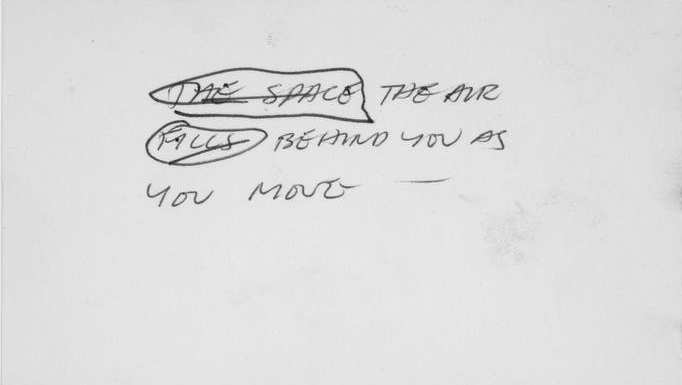 THE SPACE THE AIR
FILLS BEHIND YOU AS
YOU MOVE —